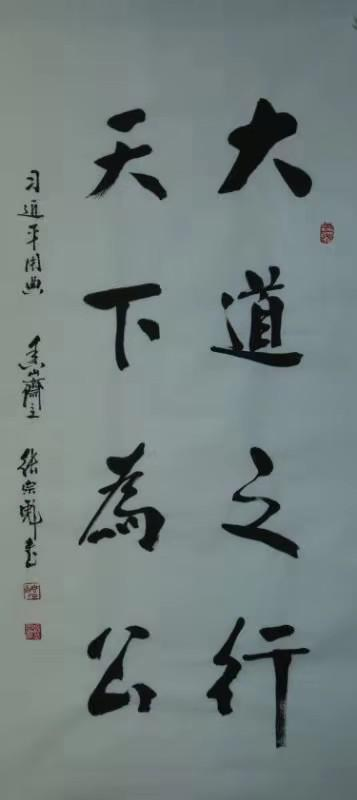 大道之行
天下為公
习近平用典 香山齋主 張宗彪书